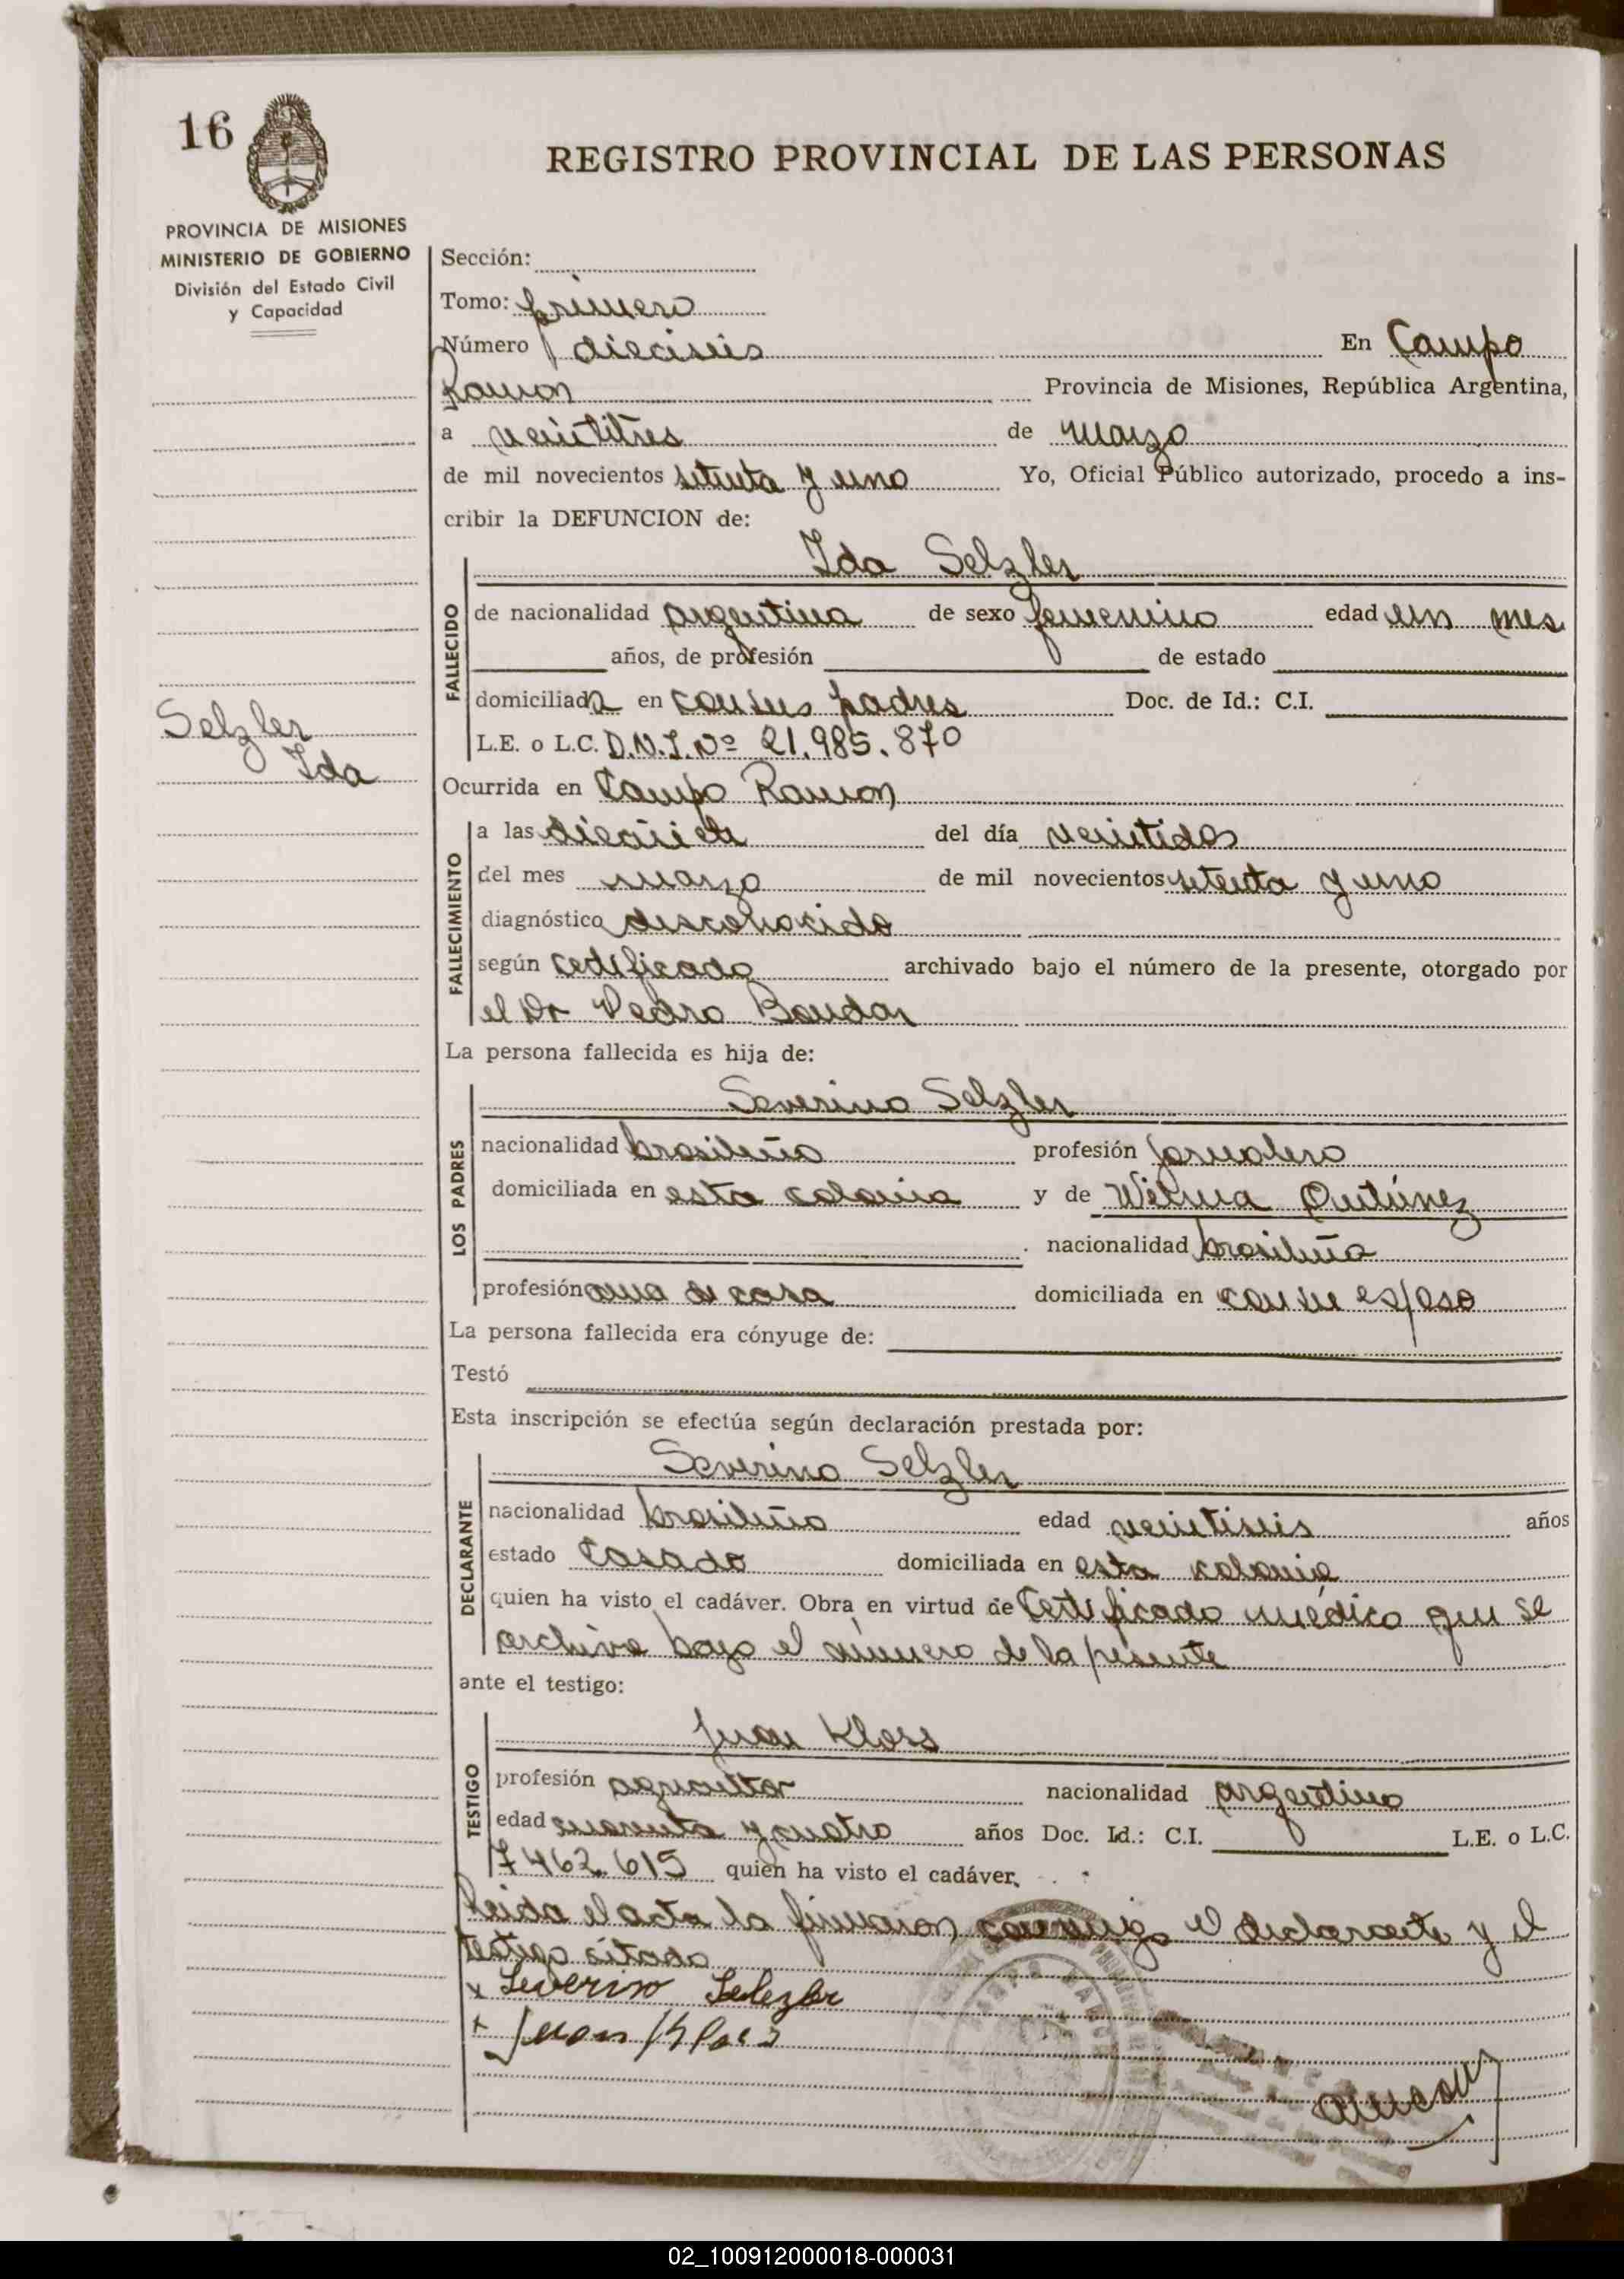 16
REGISTRO PROVINCIAL DE LAS PERSONAS
PROVINCIA DE MISIONES
MINISTERIO DE GOBIERNO
División del Estado Civil
y Capacidad
Sección:
Tomo: primero
Número dieciseis En Campo
Ramon Provincia de Misiones, República Argentina,
a veintitres de marzo
de mil novecientos setenta y uno Yo, Oficial Público autorizado, procedo a ins-
cribir la DEFUNCION de:
Ida Selzler
FALLECIDO
de nacionalidad argentina de sexo femenino edad un mes
años, de profesión de estado
domiciliada en con sus padres Doc. de Id.: C.I.
L.E. o L.C. D.N.I. Nº 21.985.870
Selzler
Ida
Ocurrida en Campo Ramon
FALLECIMIENTO
a las diecisiete del día veintidos
del mes marzo de mil novecientos setenta y uno
diagnóstico desconocido
según certificado archivado bajo el número de la presente, otorgado por
el Dr Pedro
La persona fallecida es hija de:
Severino Selzler
LOS PADRES
nacionalidad brasileño profesión jornalero
domiciliada en esta colonia y de Wilma
nacionalidad brasileña
profesión ama de casa domiciliada en con su esposo
La persona fallecida era cónyuge de:
Testó
Esta inscripción se efectúa según declaración prestada por:
Severino Selzler
DECLARANTE
nacionalidad brasileño edad veintiseis años
estado Casado domiciliada en esta colonia
quien ha visto el cadáver. Obra en virtud de Certificado médico que se
archiva bajo el número de la presente
ante el testigo:
Juan Kloss
TESTIGO
profesión agricultor nacionalidad argentino
edad cuarenta y cuatro años Doc. Id.: C.I. L.E. o L.C.
7462.615 quien ha visto el cadáver.
Leida el acta la firmaron conmigo el declarante y el
testigo citado
x Severino Selezler
+ Juan Kloss
02_100912000018-000031